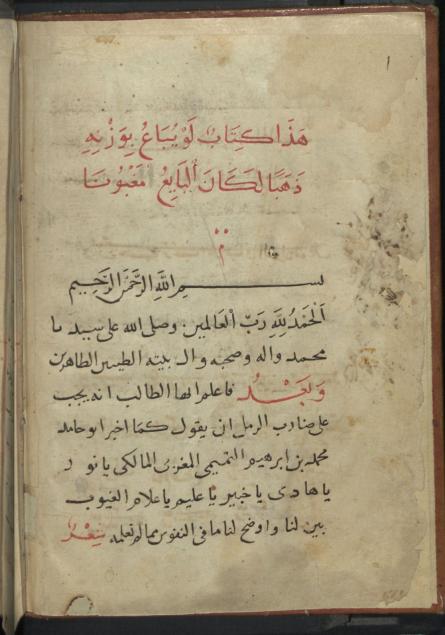 1
هَذَا كِتَابٌ لَوْ يُبَاعُ بِوَزْنِهِ
ذَهَبًا لَكَانَ ٱلبَايِعُ مَغْبُونَا
بسم الله الرحمن الرحيم
اَلْحَمْدُ لِلّهِ رَبّ العالمين وصلى الله على سيدنا
محمد واله وصحبه وال بيته الطيبين الطاهرين
وَبَعْدُ فاعلم ايها الطالب انه يجب
على ضارب الرمل ان يقول كما اخبر ابو حامد
محمد بن ابرهيم التميمي المغربي المالكي يا نور
يا هادى يا خبير يا عليم يا علام الغيوب
بين لنا واوضح لنا ما فى النفوس مما لم نعلمه شِعْرٌ